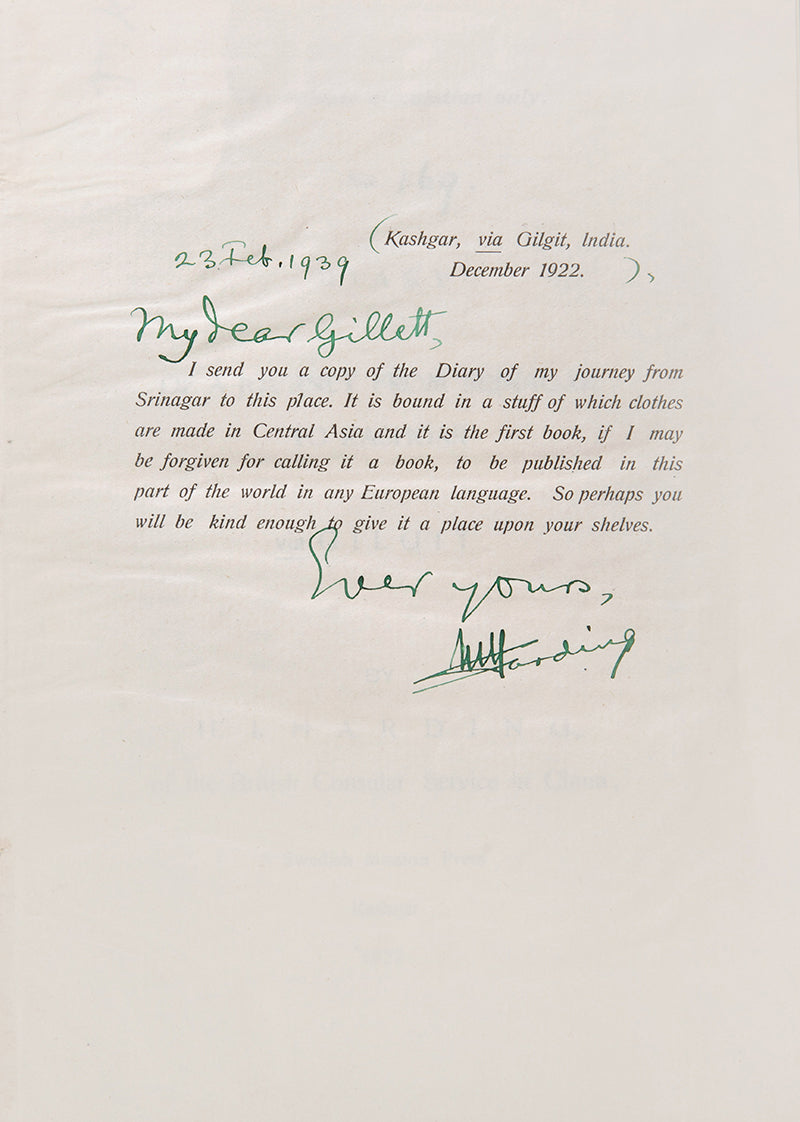 (Kashgar, via Gilgit, India.
23. Feb. 1939
December 1922. ),
My dear Gillett,
I send you a copy of the Diary of my journey from
Srinagar to this place. It is bound in a stuff of which clothes
are made in Central Asia and it is the first book, if I may
be forgiven for calling it a book, to be published in this
part of the world in any European language. So perhaps you
will be kind enough to give it a place upon your shelves.
Ever yours,
Harding
H. I. HARDING,
the British Consular Service in China.
Swedish Mission Press
Kashgar